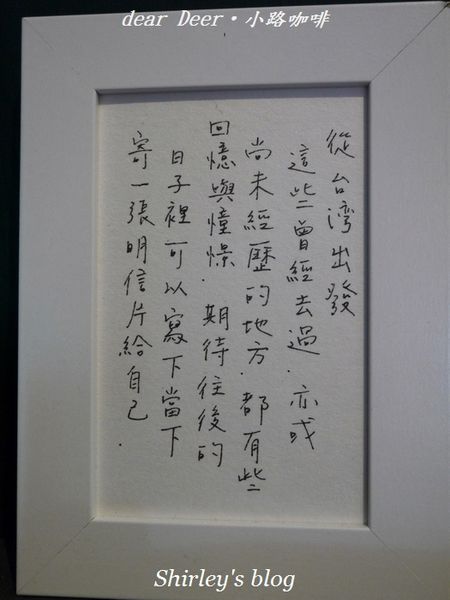 dear Deer・小路咖啡
從台湾出發
這些曾經去過．亦或
尚未經歷的地方．都有些
回憶與憧憬．期待往後的
日子裡可以寫下當下
寄一張明信片給自己．
Shirley's blog